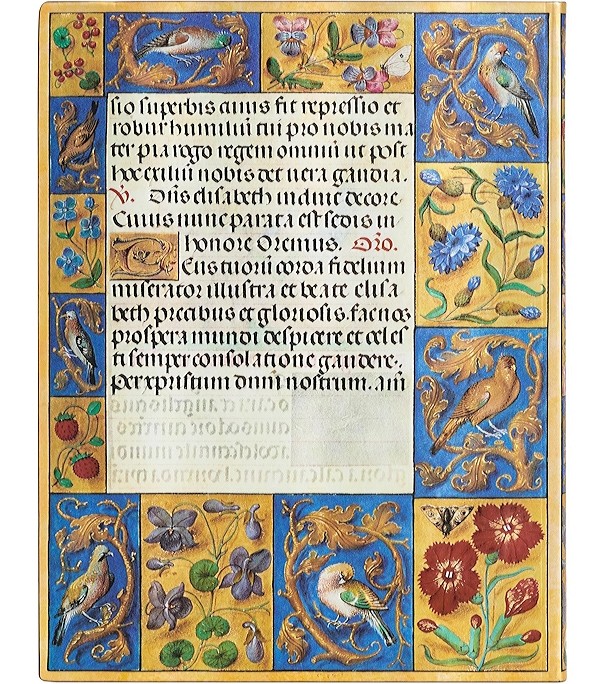 sio superbis cuius fit repressio et
robur humiliū tui pro nobis ma
ter pia rogo regem omniū ut post
hoc exiliū nobis det vera gaudia.
V. Dn̄s elisabeth induit decore.
Cuius nunc parata est sedis in
honore Oremus. Orō.
Deus tuorū corda fidelium
miserator illustra et beate elisa
beth precibus et gloriosis fac nos
prospera mundi despicere et celes
ti semper consolatione gaudere.
Per xpristum dnm̄ nostrum. am̄